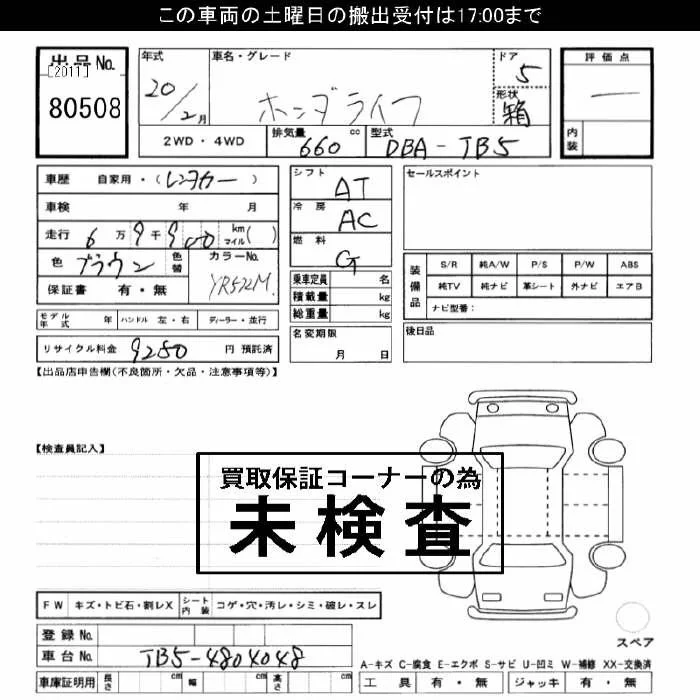 この車両の土曜日の搬出受付は17:00まで
出品No. [2011] 80508
年式 20/2月
車名・グレード ホンダライフ
ドア 5
形状 箱
2WD・4WD
排気量 660 cc
型式 DBA-TB5
評価点 —
内装
車歴 自家用・(レンタカー)
車検 年 月
走行 6万9千900 km マイル( )
色 ブラウン 色替
カラーNo. YR572M
保証書 有・無
シフト AT
冷房 AC
燃料 G
乗車定員 名
積載量 kg
総重量 kg
セールスポイント
装備品 S/R 純A/W P/S P/W ABS
純TV 純ナビ 革シート 外ナビ エアB
ナビ型番：
モデル年式 年 ハンドル 左・右 ディーラー・並行
リサイクル料金 9280 円 預託済
名変期限 月 日
後日品
【出品店申告欄(不良箇所・欠品・注意事項等)】
【検査員記入】
買取保証コーナーの為
未検査
FW キズ・トビ石・割レX シート内装 コゲ・穴・汚レ・シミ・破レ・スレ
登録No.
車台No. TB5-4804048
スペア
A-キズ C-腐食 E-エクボ S-サビ U-凹ミ W-補修 XX-交換済
車庫証明用 長さ cm 幅 cm 高さ cm
工具 有・無 ジャッキ 有・無